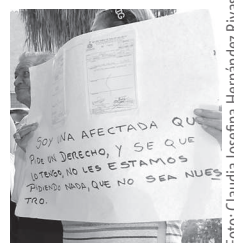 SOY UNA AFECTADA QU
PIDE UN DERECHO, Y SE QUE
LO TENGO, NO LES ESTAMOS
PIDIENDO NADA, QUE NO SEA NUES
TRO.
Foto: Claudia Josefina Hernández Rivas